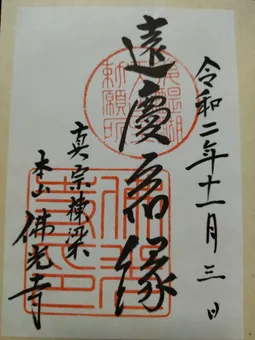 令和二年十一月三日
遠慶宿縁
真宗棟梁
本山佛光寺
勅願所